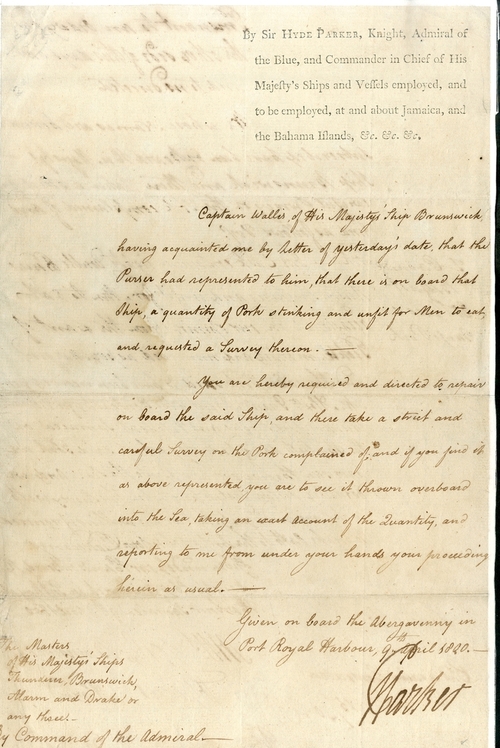 By Sir HYDE PARKER, Knight, Admiral of
the Blue, and Commander in Chief of His
Majeſty's Ships and Veſſels employed, and
to be employed, at and about Jamaica, and
the Bahama Iſlands, &c. &c. &c.
Captain Wallis, of His Majesty's Ship Brunswick
having acquainted me by Letter of yesterday's date, that the
Purser had represented to him, that there is on board that
Ship, a quantity of Pork stinking and unfit for Men to eat,
and requested a Survey thereon. —
You are hereby required and directed to repair
on board the said Ship, and there take a strict and
careful Survey on the Pork complained of, and if you find it
as above represented, you are to see it thrown overboard
into the Sea, taking an exact Account of the Quantity, and
reporting to me from under your hands your proceeding
herein as usual. —
Given on board the Abergavenny in
Port Royal Harbour, 9th April 1800. —
HParker
The Masters
of His Majesty's Ships
Thunderer, Brunswick,
Alarm and Drake or
any three. —
By Command of the Admiral —